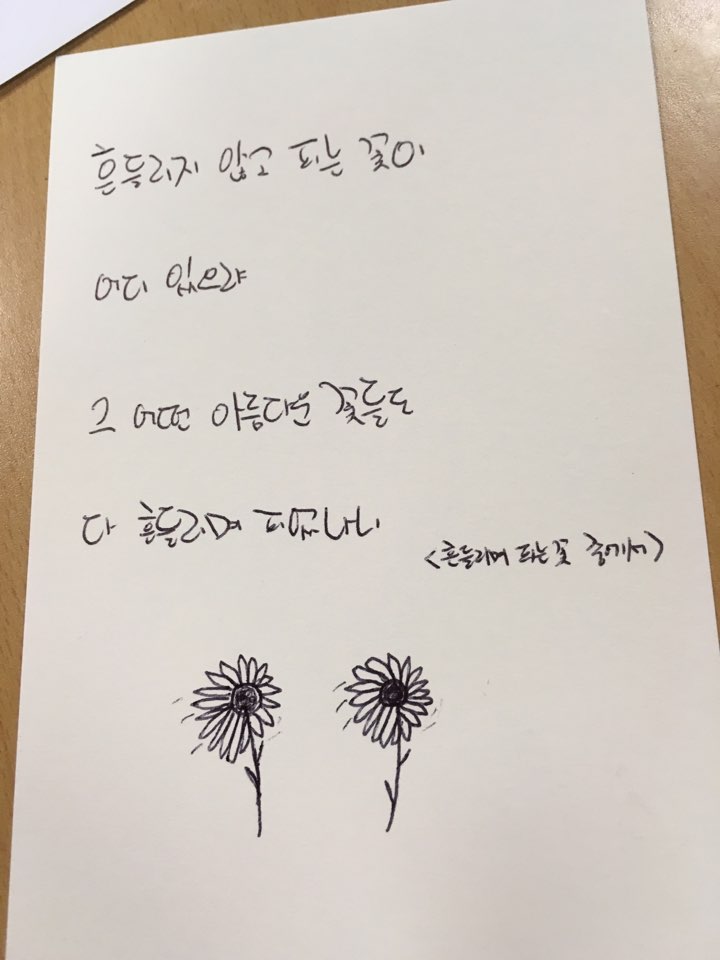 흔들리지 않고 피는 꽃이
어디 있으랴
그 어떤 아름다운 꽃들도
다 흔들리며 피었나니
<흔들리며 피는 꽃 중에서>